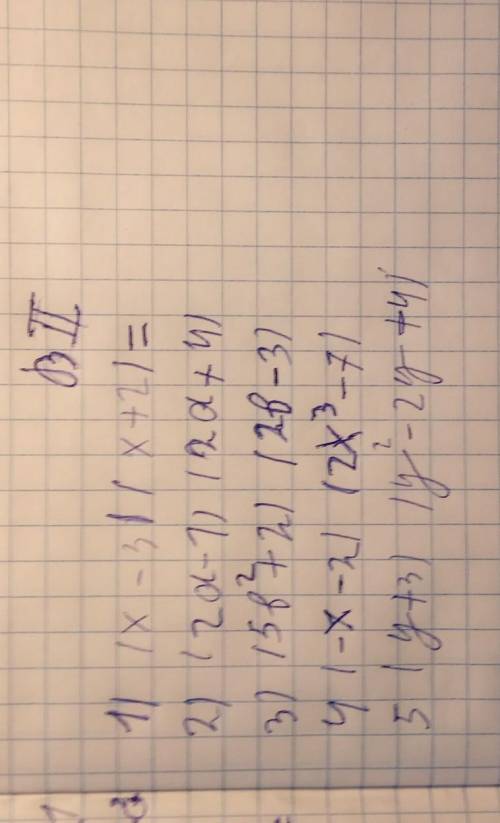 В II
1) (x-3)(x+2)=
2) (2a-7)(2a+4)
3) (5b²+2)(2b-3)
4) (-x-2)(2x³-7)
5 (y+3)(y²-2y+4)